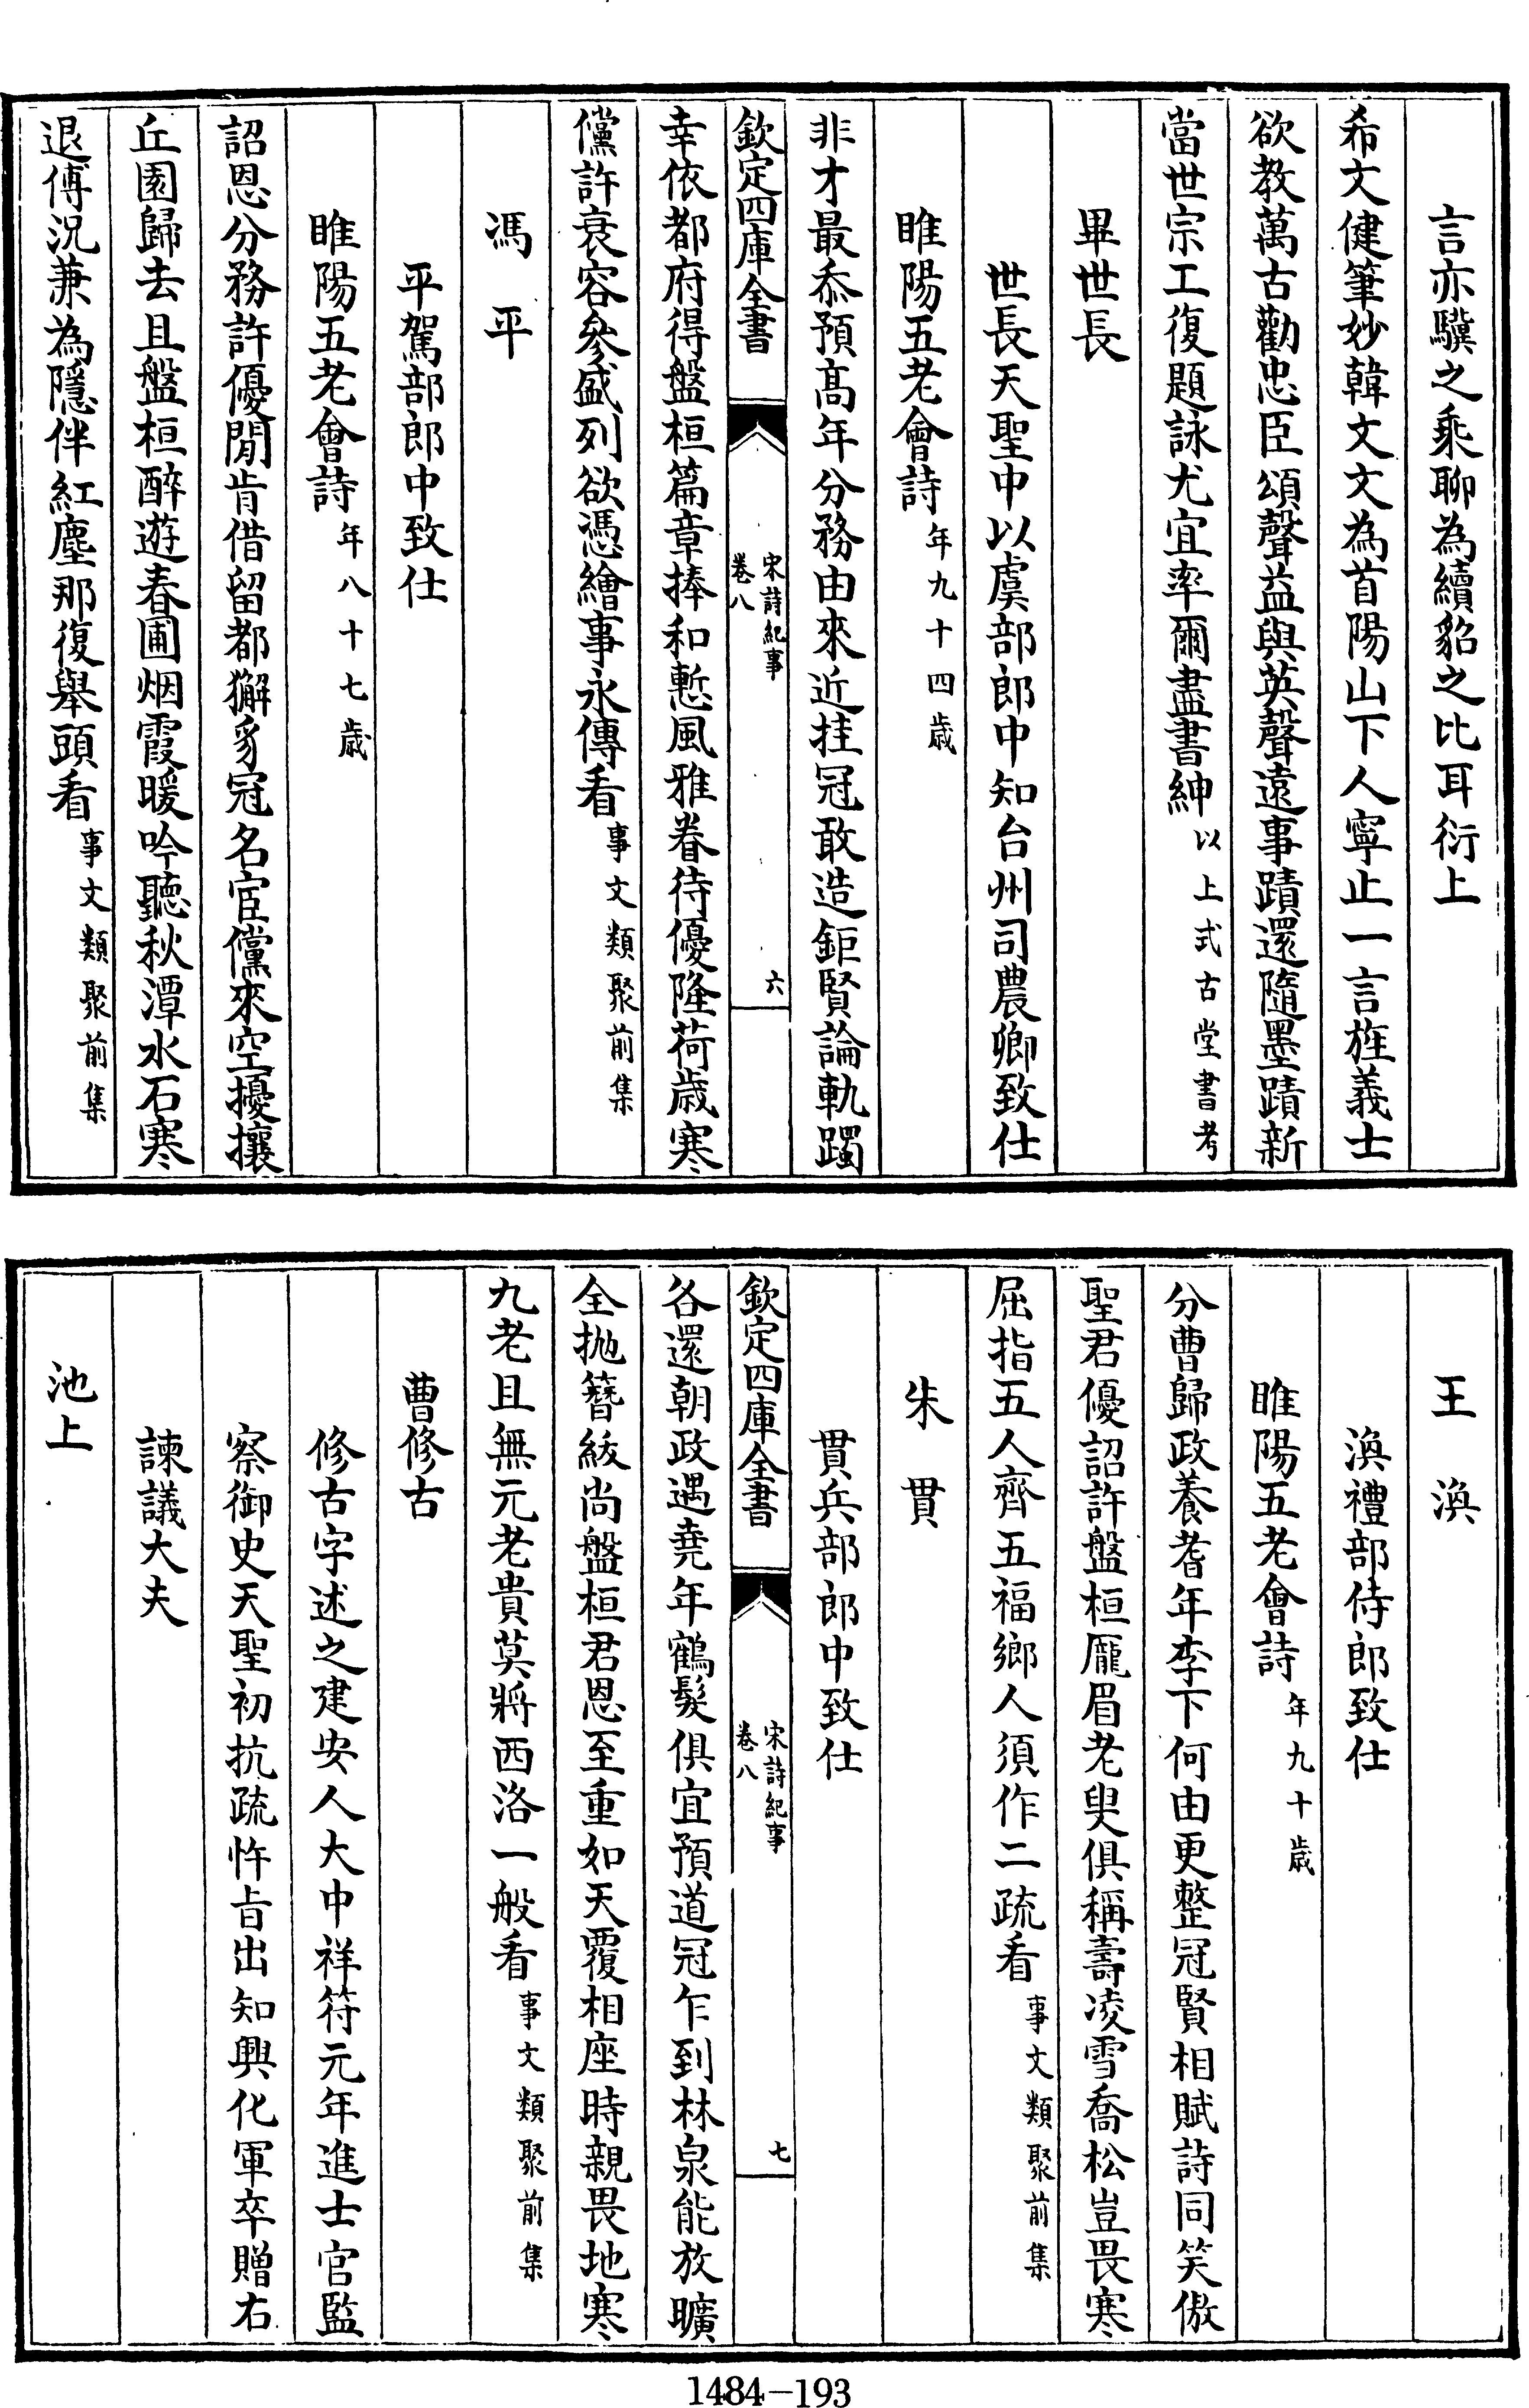 言亦驥之乘聊為續貂之比耳衍上
希文健筆妙韓文文為首陽山下人寧止一言旌義士
欲教萬古勸忠臣頌聲益與英聲遠事蹟還隨墨蹟新
當世宗工復題詠尤宜率爾盡書紳以上式古堂書考
畢世長
世長天聖中以虞部郎中知台州司農卿致仕
睢陽五老會詩年九十四歲
非才最忝預高年分務由來近挂冠敢造鉅賢論軌躅
欽定四庫全書
宋詩紀事
卷八
六
幸依都府得盤桓篇章捧和慙風雅眷待優隆荷歲寒
儻許衰容參盛列欲憑繪事永傳看事文類聚前集
馮平
平駕部郎中致仕
睢陽五老會詩年八十七歲
詔恩分務許優閒肯借留都獬豸冠名宦儻來空擾攘
丘園歸去且盤桓醉遊春圃烟霞暖吟聽秋潭水石寒
退傅況兼為隱伴紅塵那復舉頭看事文類聚前集
王渙
渙禮部侍郎致仕
睢陽五老會詩年九十歲
分曹歸政養耆年李下何由更整冠賢相賦詩同笑傲
聖君優詔許盤桓龎眉老叟俱稱壽凌雪喬松豈畏寒
屈指五人齊五福鄉人須作二疏看事文類聚前集
朱貫
貫兵部郎中致仕
欽定四庫全書
宋詩紀事
卷八
七
各還朝政遇堯年鶴髮俱宜預道冠乍到林泉能放曠
全拋簪紱尚盤桓君恩至重如天覆相座時親畏地寒
九老且無元老貴莫將西洛一般看事文類聚前集
曹修古
修古字述之建安人大中祥符元年進士官監
察御史天聖初抗疏忤旨出知興化軍卒贈右
諫議大夫
池上
1484-193